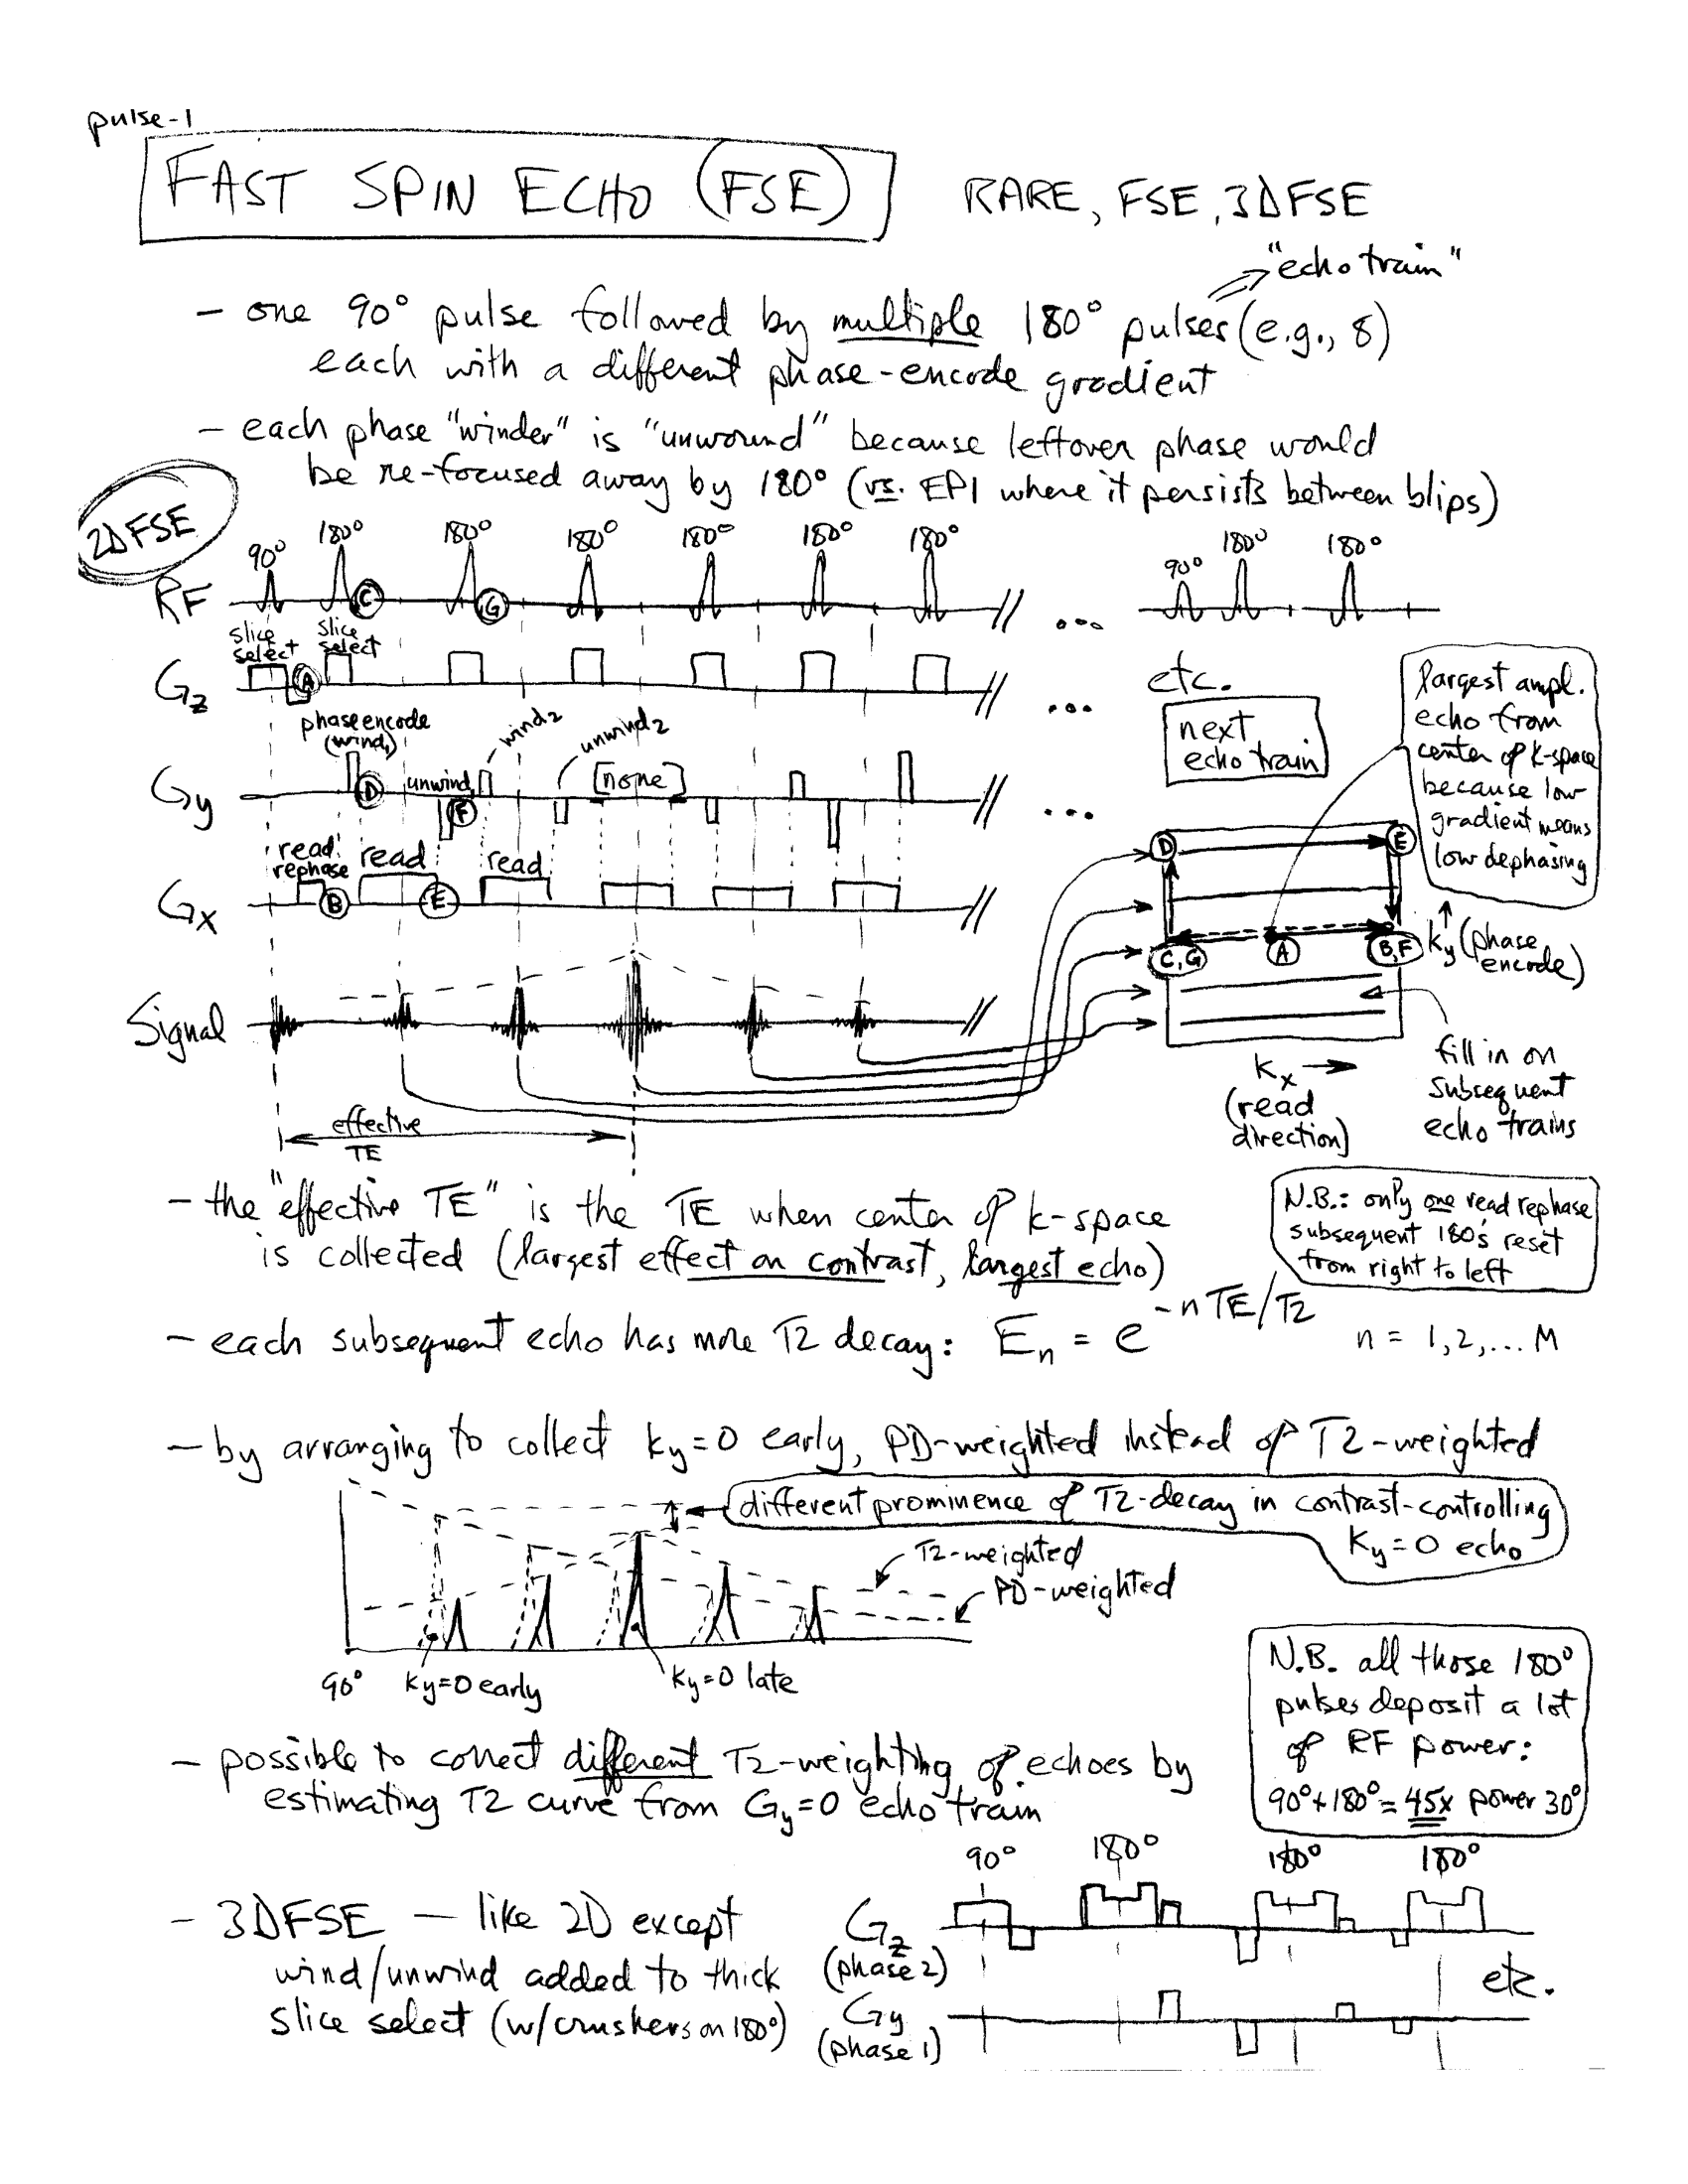 pulse-1
FAST SPIN ECHO (FSE)
RARE, FSE, 3DFSE
"echo train"
- one 90° pulse followed by multiple 180° pulses (e.g., 8)
each with a different phase-encode gradient
- each phase "winder" is "unwound" because leftover phase would
be re-focused away by 180° (vs. EPI where it persists between blips)
2DFSE
90° 180° 180° 180° 180° 180° 180° 90° 180° 180°
RF C G // ...
slice select slice select
Gz A // ... etc.
next
echo train
largest ampl.
echo from
center of k-space
because low
gradient means
low dephasing
phase encode
(wind1)
wind2
unwind2
Gy D unwind1 F [none] // ...
read
rephase
read
read
Gx B E //
D E
C,G A B,F
ky (phase
encode)
Signal //
kx →
(read
direction)
fill in on
subsequent
echo trains
effective
TE
- the "effective TE" is the TE when center of k-space
is collected (largest effect on contrast, largest echo)
N.B.: only one read rephase
subsequent 180's reset
from right to left
- each subsequent echo has more T2 decay: En = e^-nTE/T2 n = 1,2,... M
- by arranging to collect ky=0 early, PD-weighted instead of T2-weighted
different prominence of T2-decay in contrast-controlling
ky=0 echo
T2-weighted
PD-weighted
90° ky=0 early ky=0 late
N.B. all those 180°
pulses deposit a lot
of RF power:
90°+180° = 45x power 30°
- possible to correct different T2-weighting of echoes by
estimating T2 curve from Gy=0 echo train
90° 180° 180° 180°
- 3DFSE — like 2D except
wind/unwind added to thick
slice select (w/crushers on 180°)
Gz
(phase 2)
etc.
Gy
(phase 1)